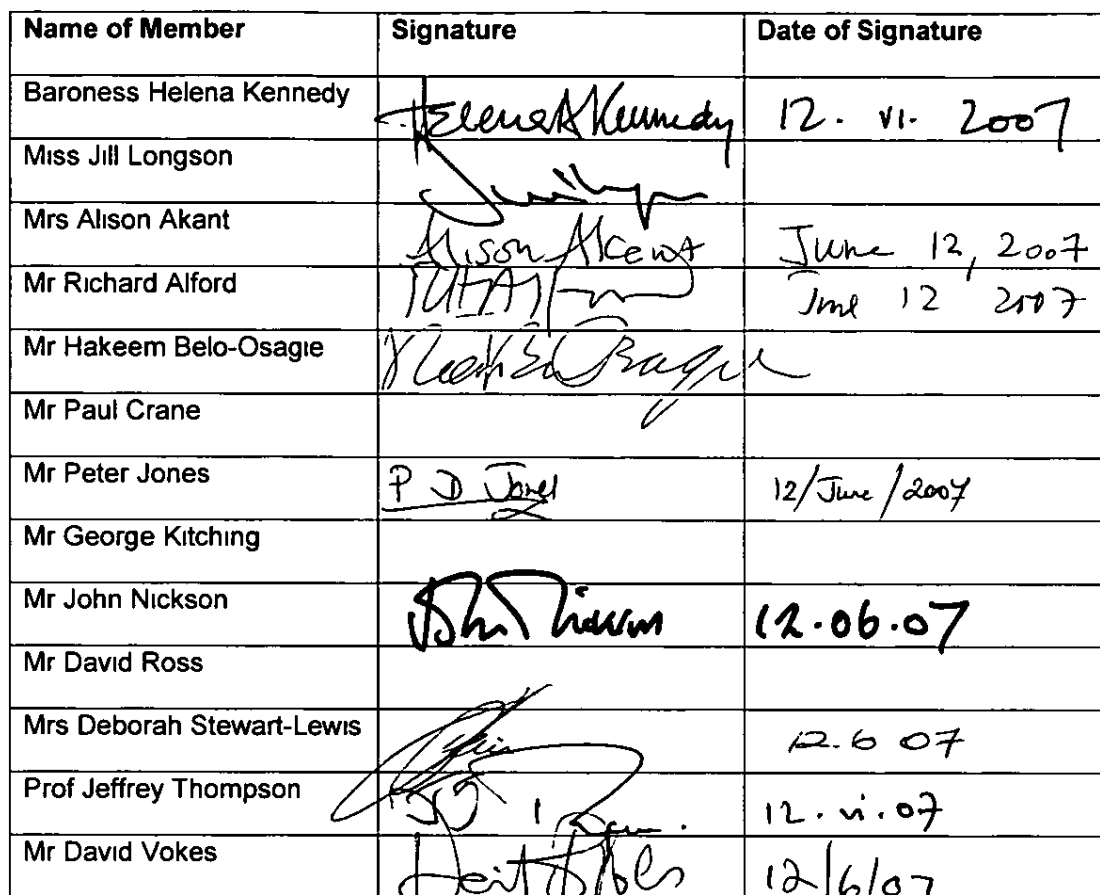 Name of Member Signature Date of Signature
Baroness Helena Kennedy Helena A Kennedy 12. VI. 2007
Miss Jill Longson
Mrs Alison Akant Alison Akant June 12, 2007
Mr Richard Alford June 12 2007
Mr Hakeem Belo-Osagie
Mr Paul Crane
Mr Peter Jones P D Jones 12/June/2007
Mr George Kitching
Mr John Nickson John Nickson 12.06.07
Mr David Ross
Mrs Deborah Stewart-Lewis 12.6 07
Prof Jeffrey Thompson 12.vi.07
Mr David Vokes David Vokes 12/6/07